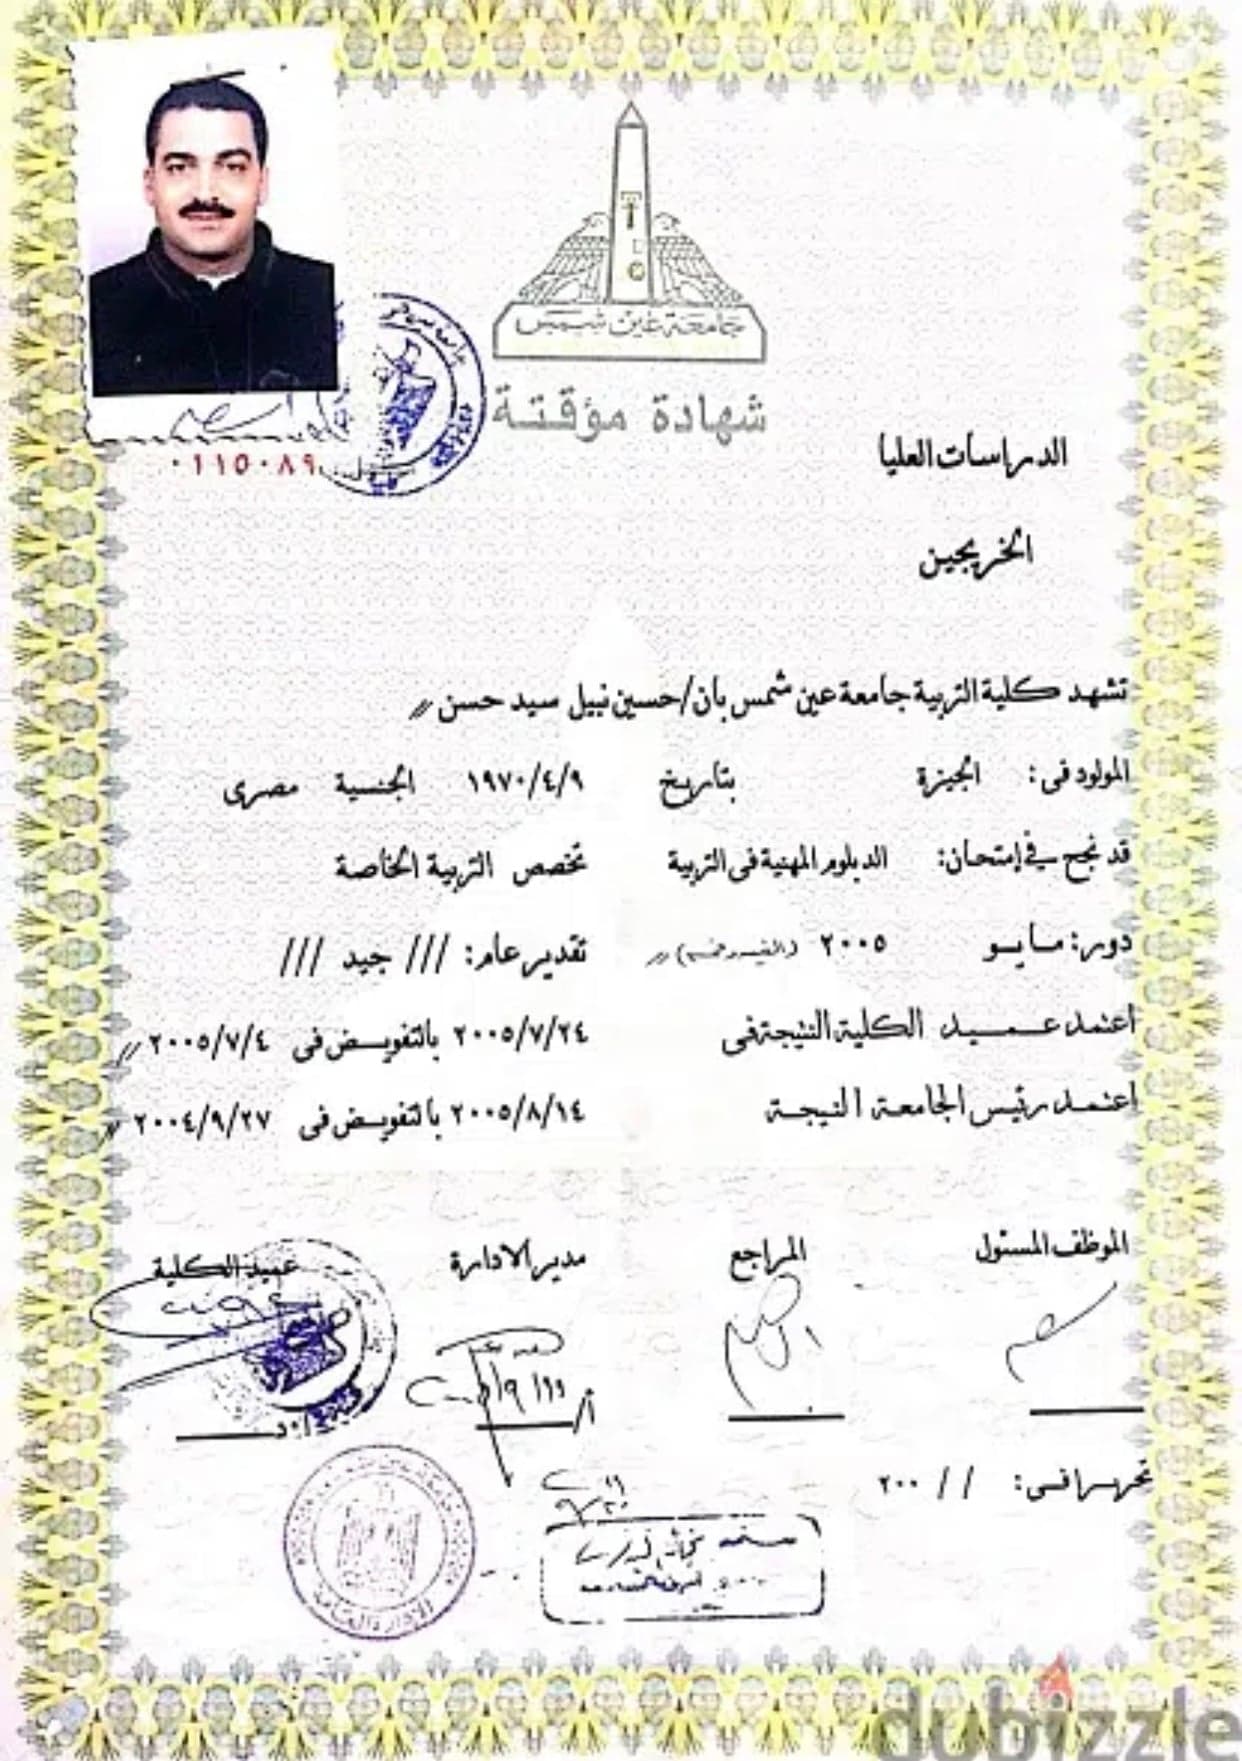 جامعة عين شمس
شهادة مؤقتة
٠١١٥٠٨٩
الدراسات العليا
الخريجين
تشهد كلية التربية جامعة عين شمس بان/حسين نبيل سيد حسن //
المولود فى: الجيزة بتاريخ ١٩٧٠/٤/٩ الجنسية مصرى
قد نجح في إمتحان: الدبلوم المهنية فى التربية تخصص التربية الخاصة
دور: مايو ٢٠٠٥ تقدير عام: /// جيد ///
اعتمد عميد الكلية النتيجة فى ٢٠٠٥/٧/٢٤ بالتفويض فى ٢٠٠٥/٧/٤ //
اعتمد رئيس الجامعة النيجة ٢٠٠٥/٨/١٤ بالتفويض فى ٢٠٠٤/٩/٢٧ //
الموظف المسئول المراجع مدير الادارة عميد الكلية
تحريرا فى: / / ٢٠٠
dubizzle